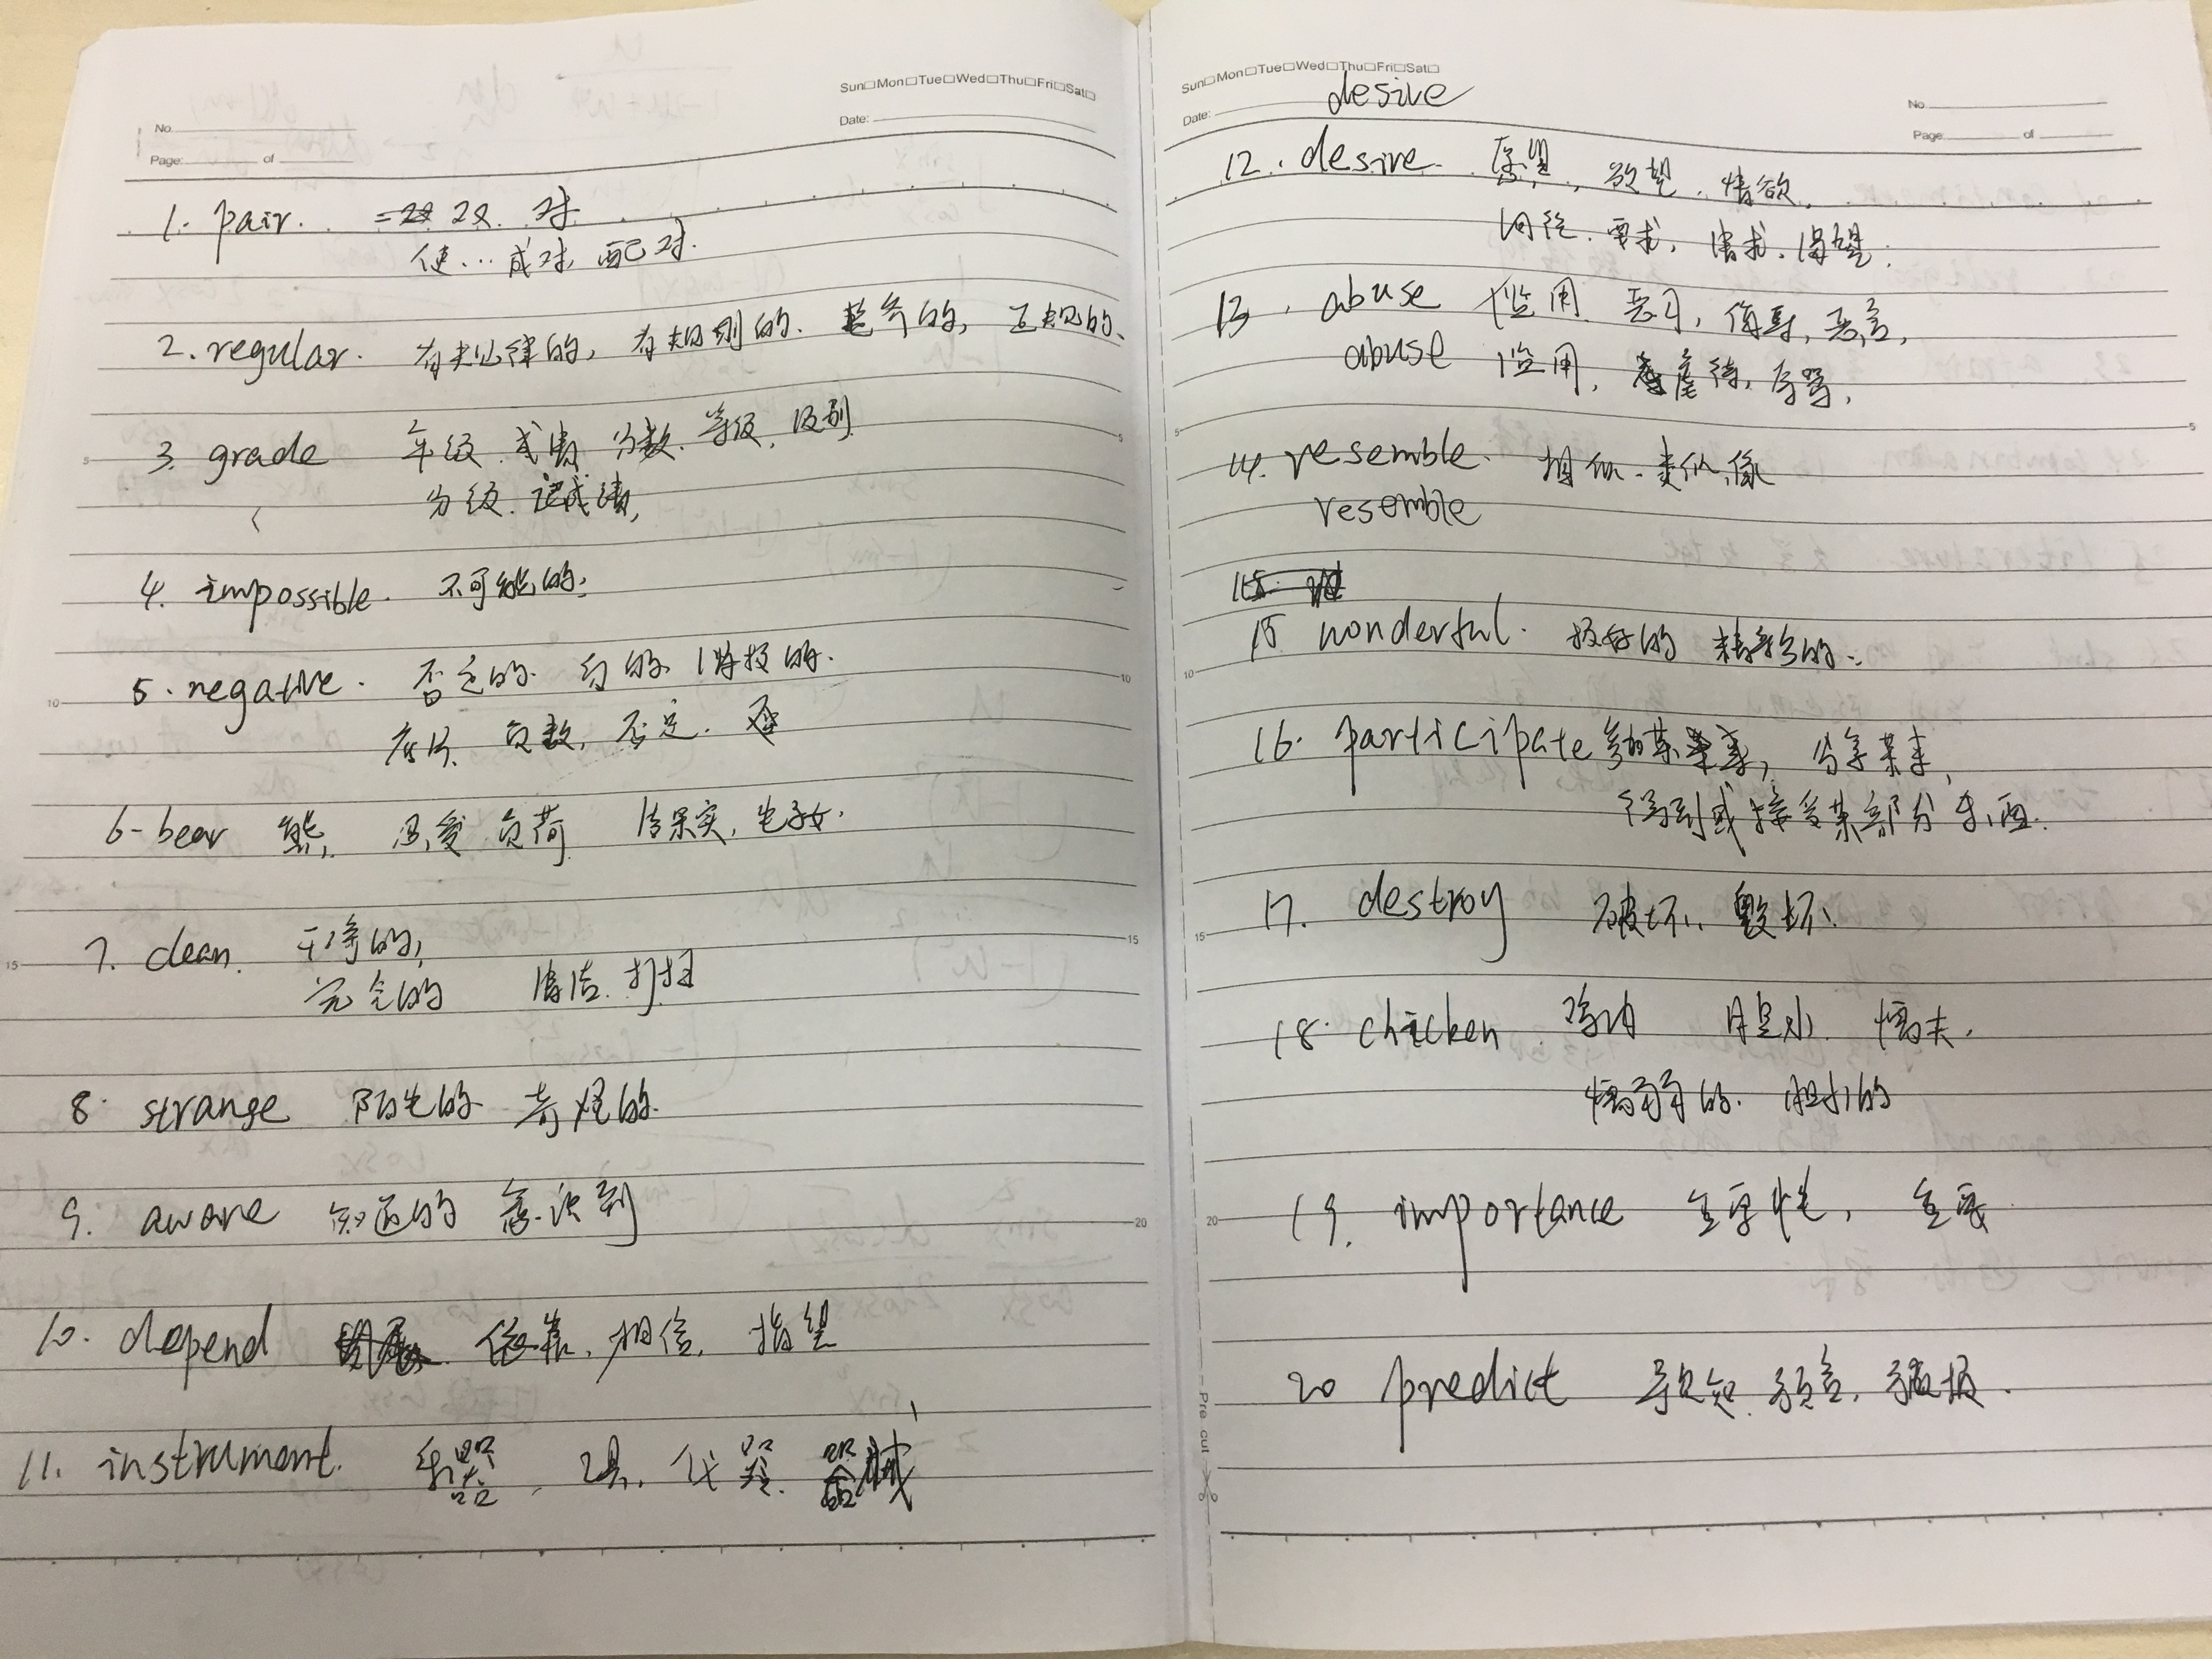 Sun□Mon□Tue□Wed□Thu□Fri□Sat□
No
Date:
Page: of
1. pair. 双 对
使…成对, 配对.
2. regular. 有规律的, 有规则的. 整齐的, 正规的、
3. grade 年级 成绩 分数. 等级, 级别
分级. 记成绩,
4. impossible. 不可能的;
5. negative. 否定的 负的 消极的.
底片 负数, 否定.
6-bear 熊, 忍受 负荷 结果实, 生子女.
7. clean. 干净的,
完全的 清洁. 打扫
8. strange 陌生的 奇怪的.
9. aware 知道的 意识到
10. depend 依靠, 相信, 指望
11. instrument. 乐器, 工具, 仪器. 器械
Sun□Mon□Tue□Wed□Thu□Fri□Sat□
desire
No
Date:
Page: of
12. desire. 愿望, 欲望. 情欲.
要求, 请求. 渴望.
13. abuse 滥用 恶习, 侮辱, 恶言,
abuse 滥用, 虐待, 辱骂,
14. resemble. 相似. 类似, 像
resemble
15 wonderful. 极好的 精彩的.
16. participate 参加某事, 分享某事,
得到或接受某部分东西.
17. destroy 破坏, 毁坏,
18. chicken 鸡肉 胆小 懦夫.
懦弱的. 胆小的
19. importance 重要性, 重要
20 predict 预知 预言, 预报.
Pre cut